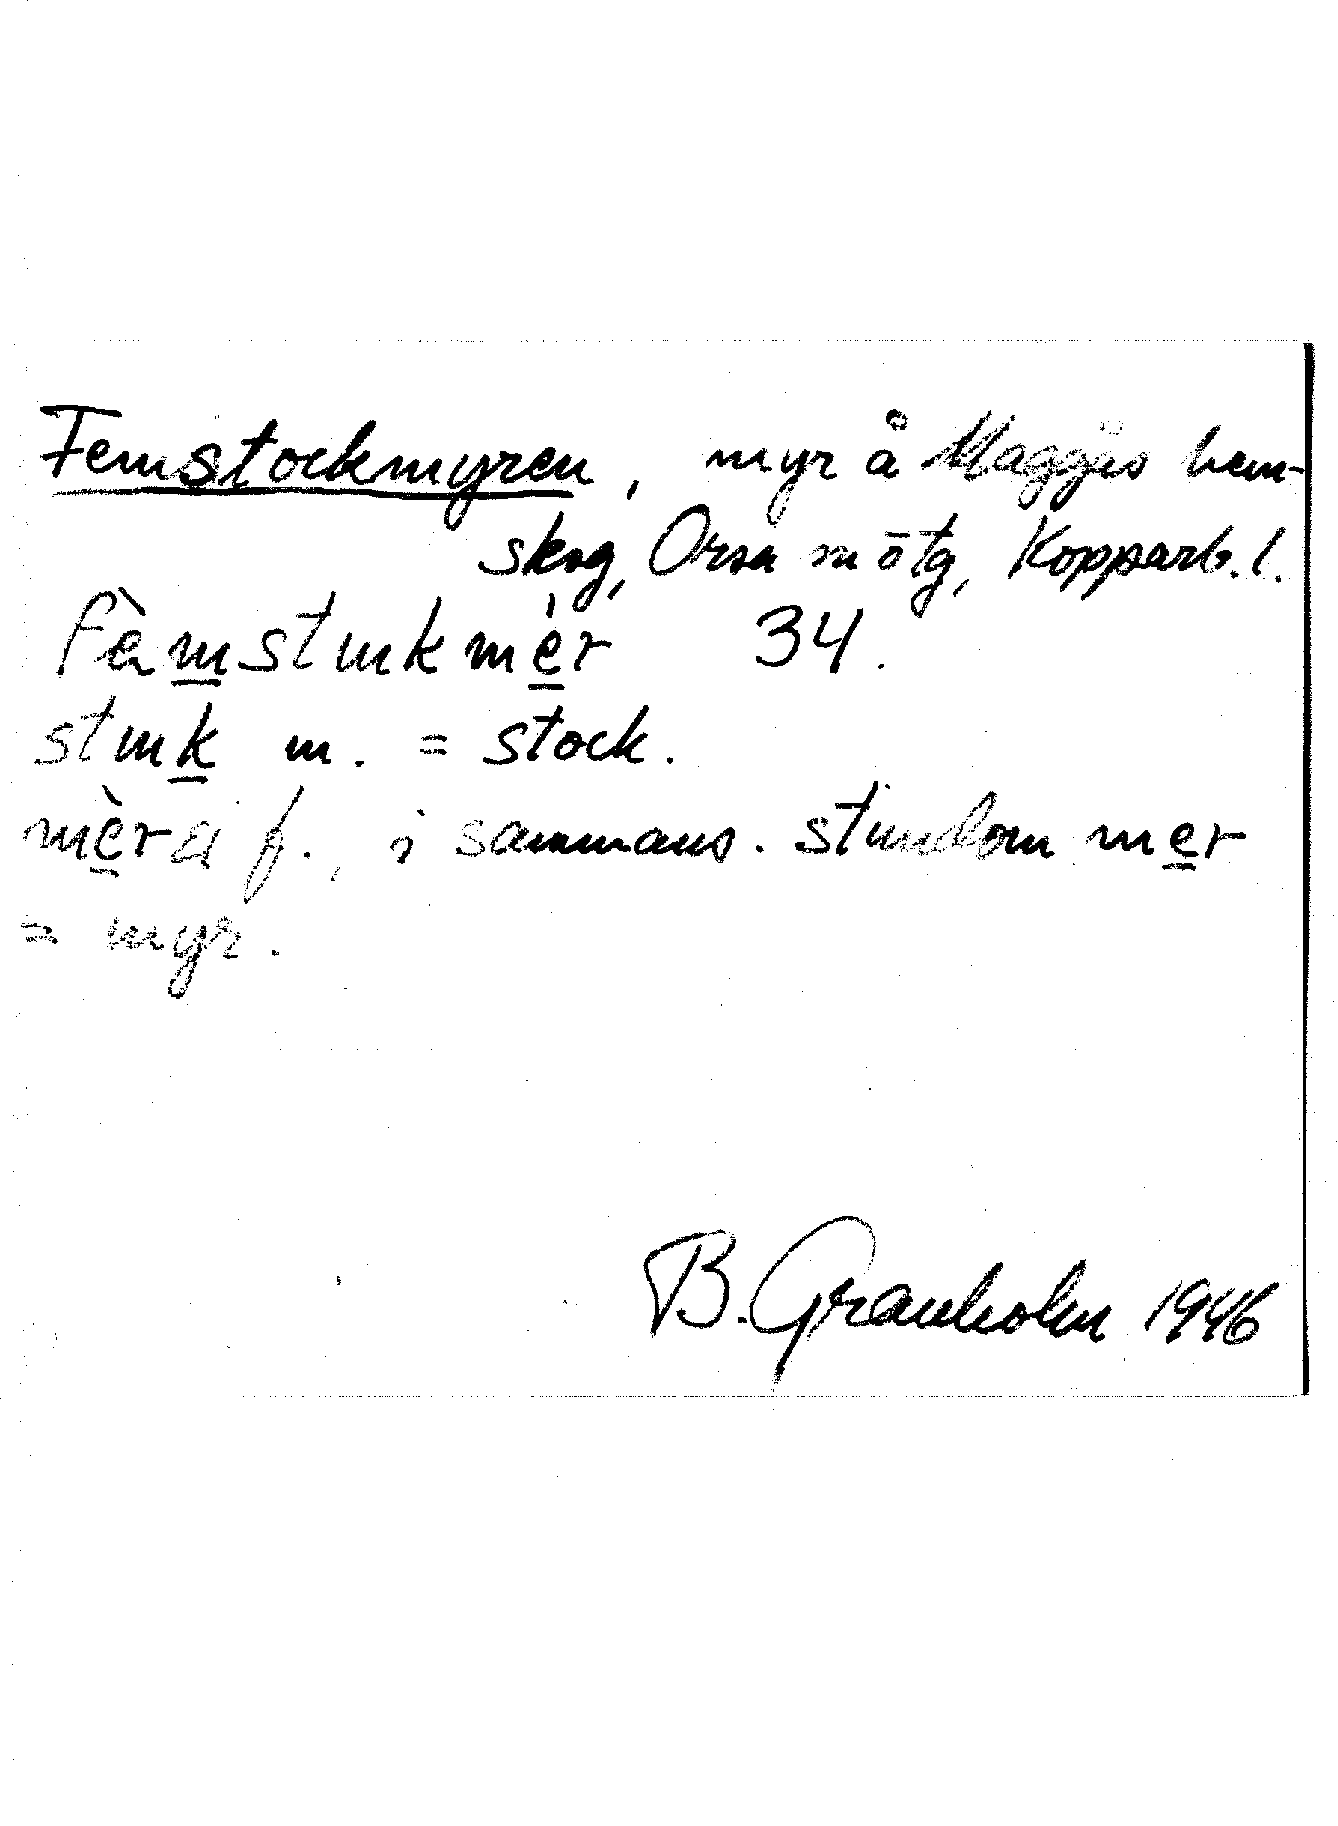 Femstockmyren, myr å Maggås hem-
skog, Orsa m ö tg, Kopparb. l.
fèmstɯkmèr 34.
stɯk m. = stock.
mèra f., i sammans. stundom mer
= myr.
B. Granholm 1946